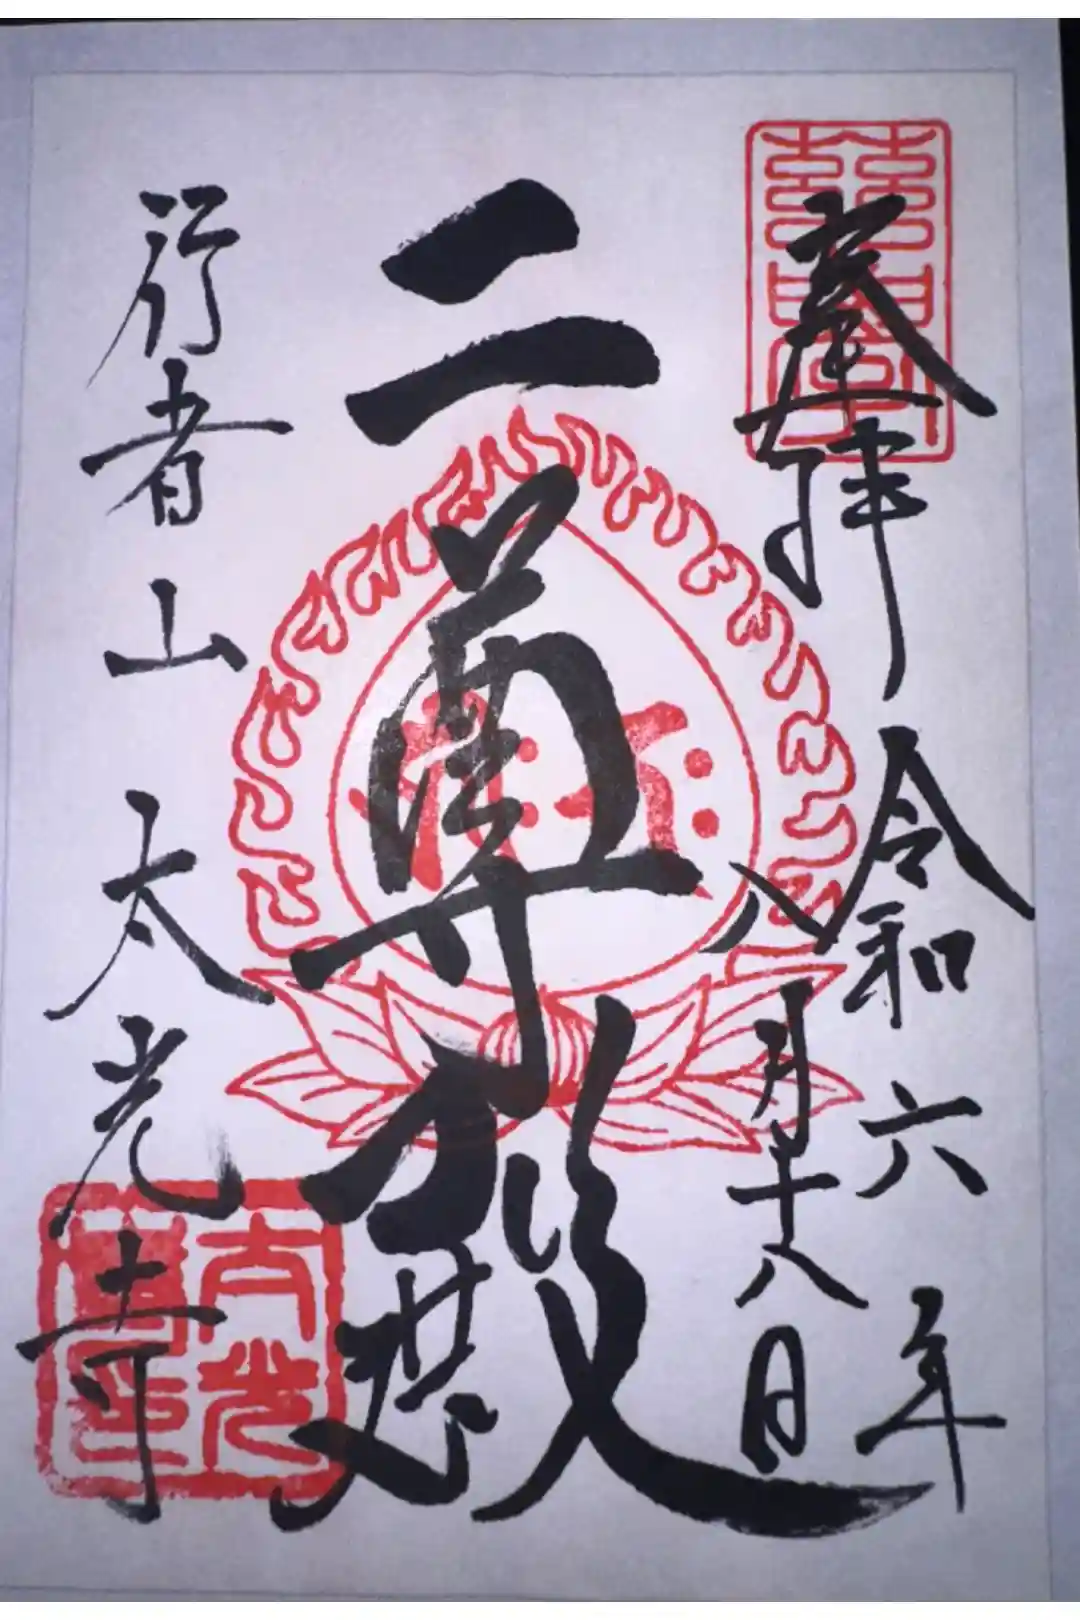 奉拝
令和六年
八月十八日
二尊殿
行者山
太光寺
太光寺印